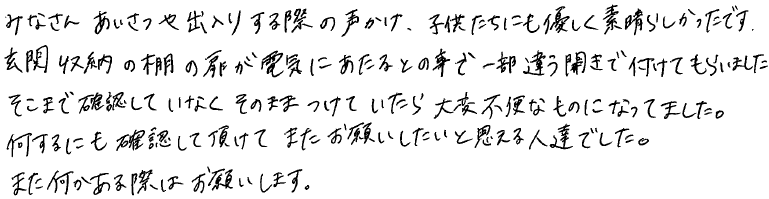 みなさん あいさつや出入りする際の声かけ、子供たちにも優しく素晴らしかったです.
玄関収納の棚の扉が電気にあたるとの事で一部違う開きで付けてもらいました
そこまで確認していなく そのままつけていたら 大変不便なものになってました。
何するにも確認して頂けて またお願いしたいと思える人達でした。
また何かある際はお願いします。